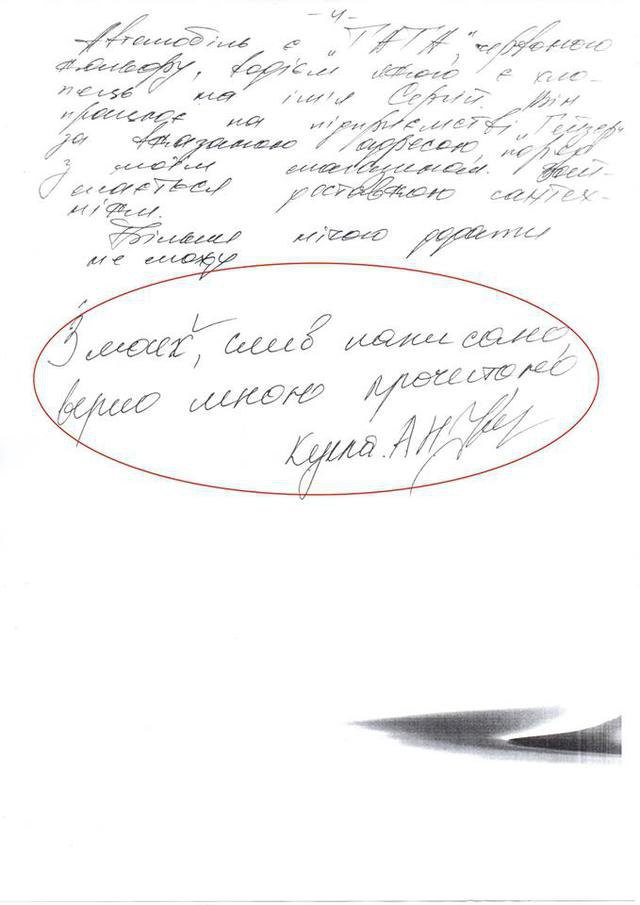 - 4 -
Автомобіль є "ТАТА", червоного
кольору, водієм якого є хло-
пець на імія Сергій. Він
працює на підприємстві "Гейзер"
за вказаною адресою, поряд
з моїм магазином. Зай-
мається доставкою сантех-
ніки.
Більше нічого додати
не можу
З моїх слів написано,
верно мною прочитоно
Кукла. А Н